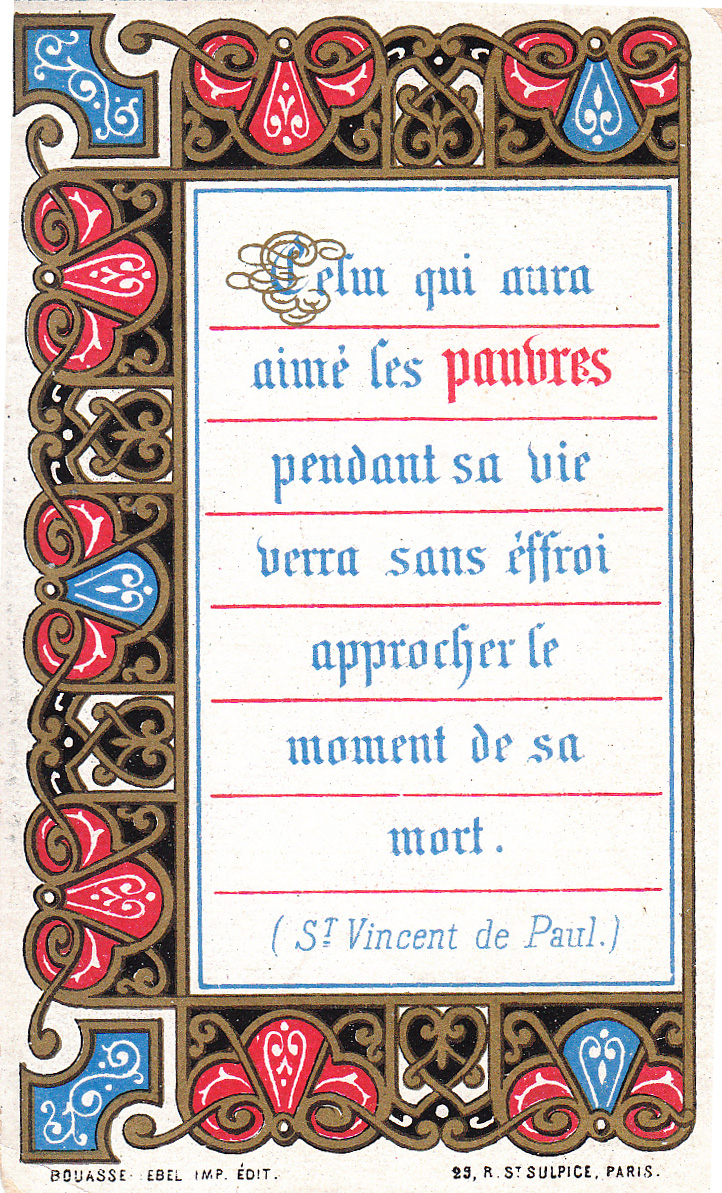 Celui qui aura
aimé les pauvres
pendant sa vie
verra sans éffroi
approcher le
moment de sa
mort.
(ST Vincent de Paul.)
BOUASSE EBEL IMP. ÉDIT. 29, R. ST SULPICE, PARIS.